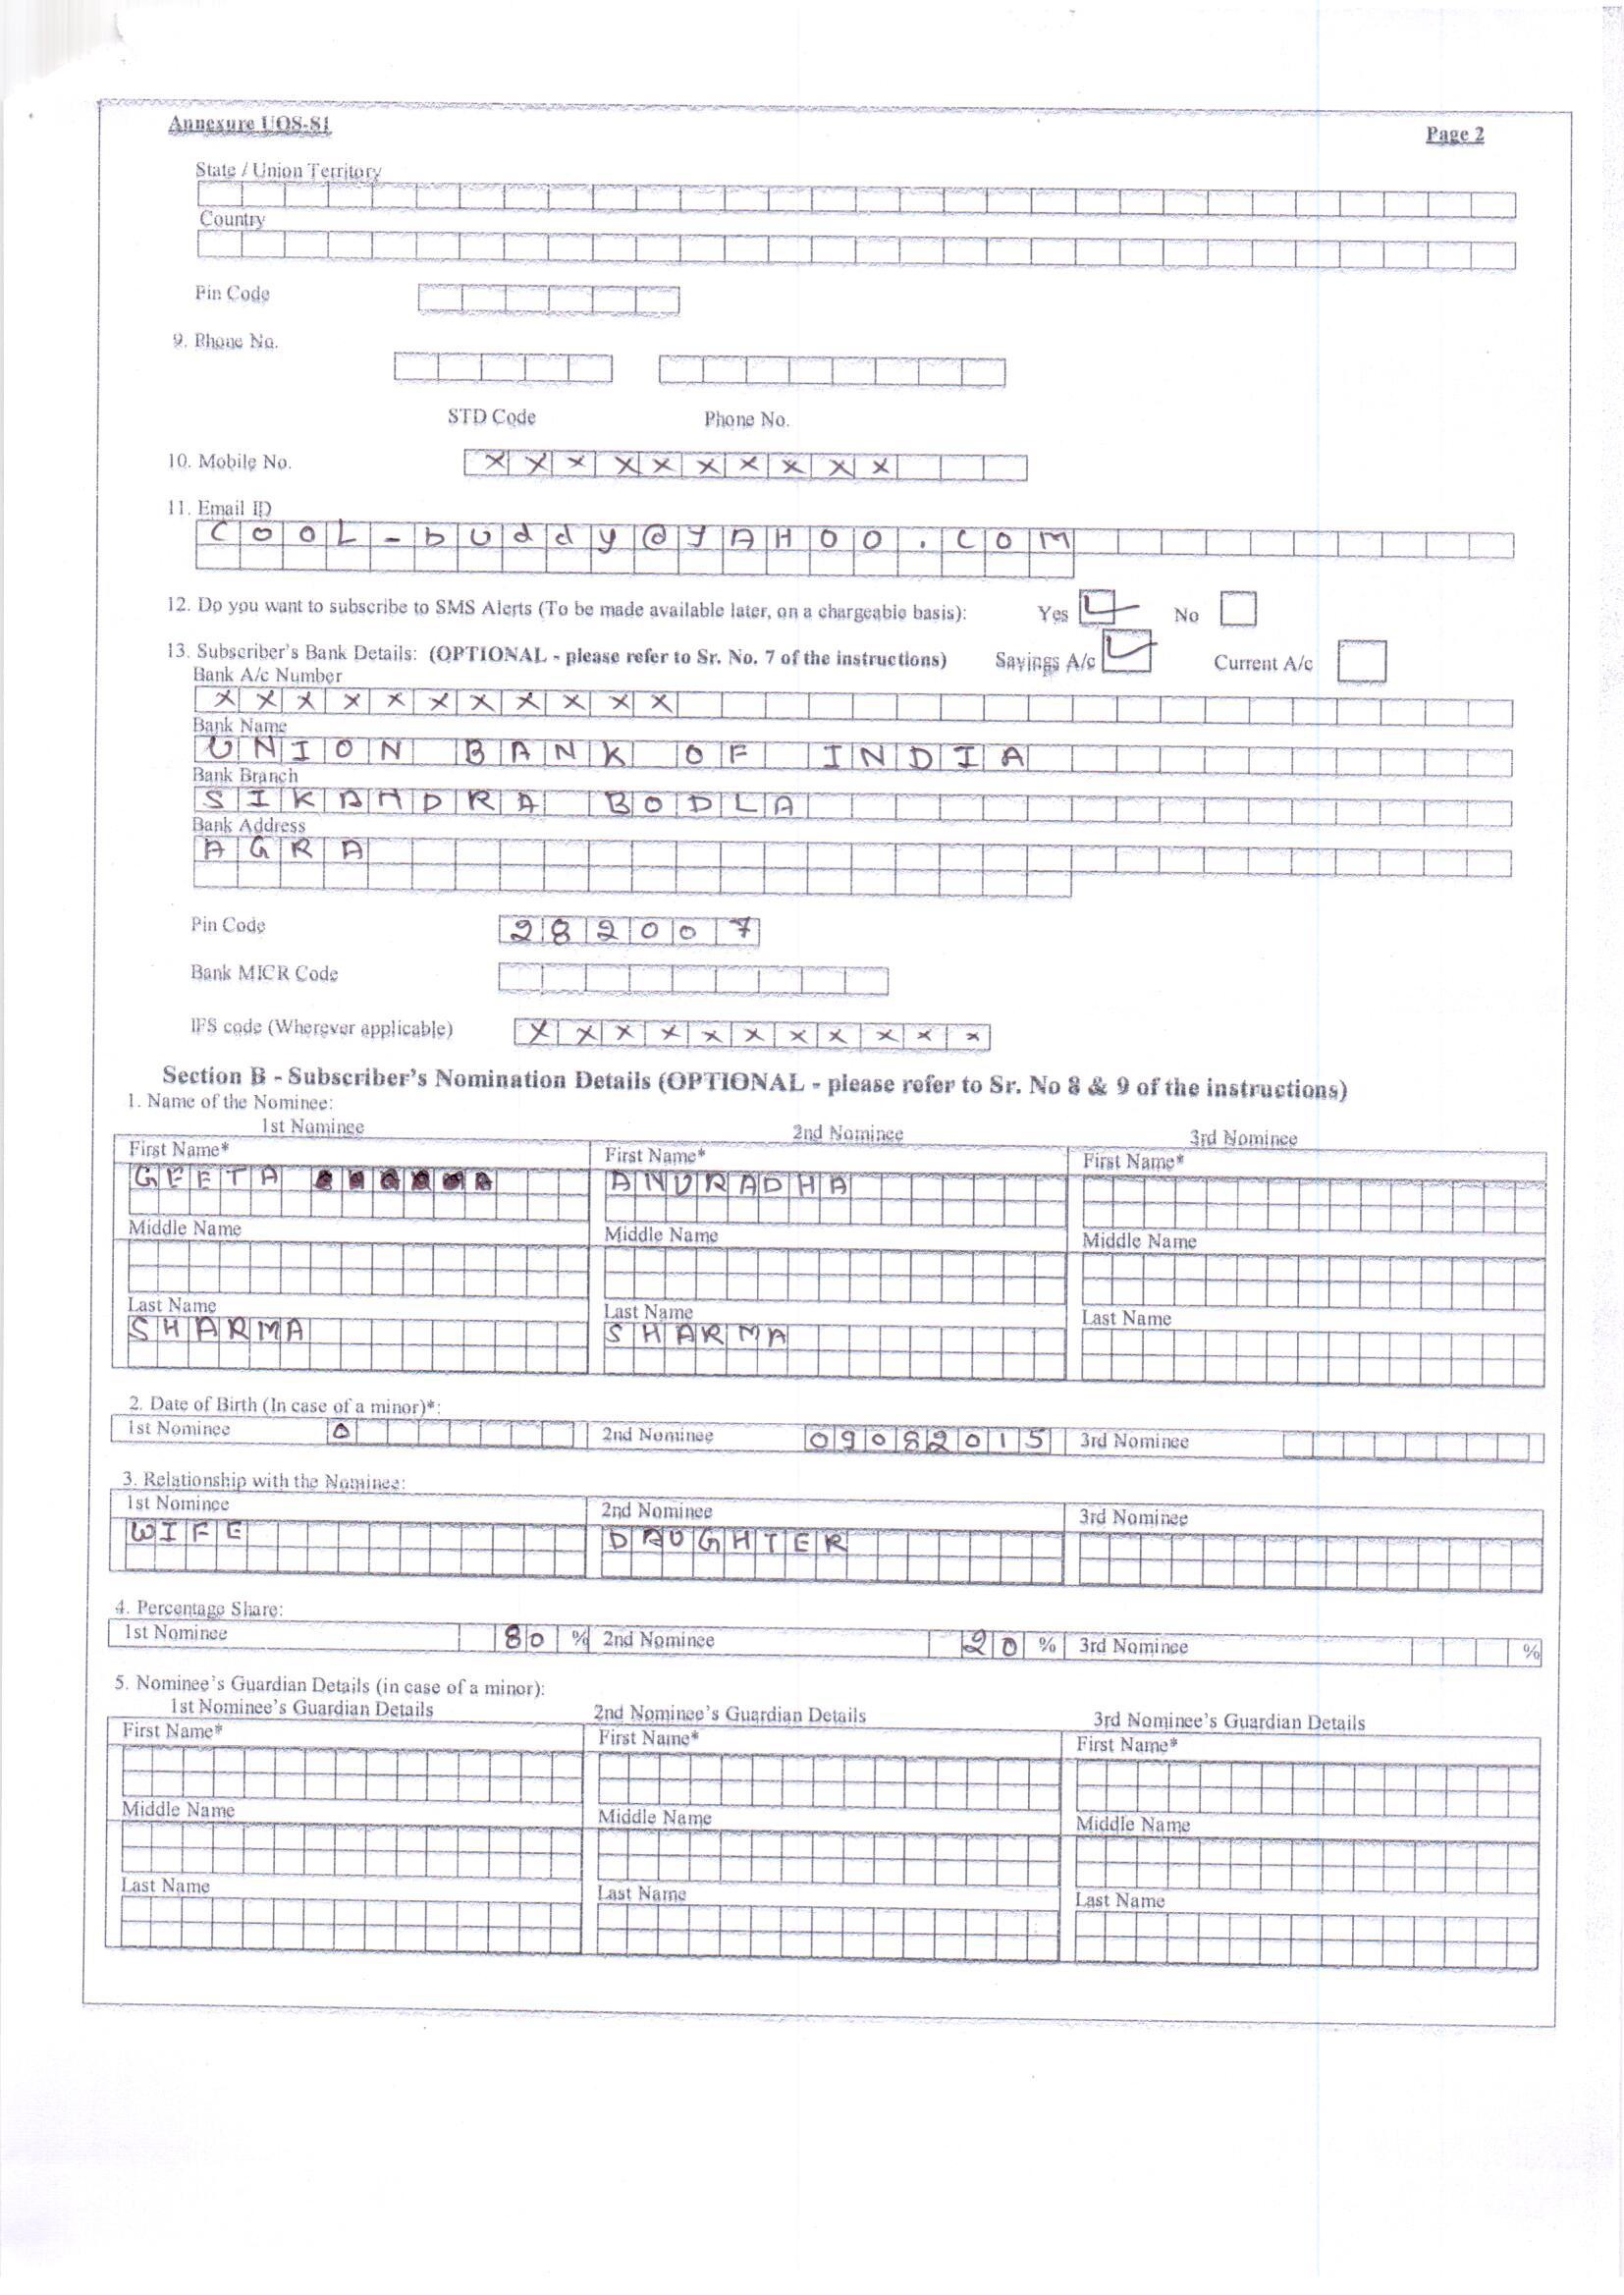 Annexure UOS-S1
Page 2
State / Union Territory
Country
Pin Code
9. Phone No.
STD Code Phone No.
10. Mobile No. XXXXXXXXXX
11. Email ID
COOL-buddy@YAHOO.COM
12. Do you want to subscribe to SMS Alerts (To be made available later, on a chargeable basis): Yes No
13. Subscriber's Bank Details: (OPTIONAL - please refer to Sr. No. 7 of the instructions) Savings A/c Current A/c
Bank A/c Number
XXXXXXXXXXX
Bank Name
UNION BANK OF INDIA
Bank Branch
SIKANDRA BODLA
Bank Address
AGRA
Pin Code 282007
Bank MICR Code
IFS code (Wherever applicable) XXXXXXXXXXX
Section B - Subscriber's Nomination Details (OPTIONAL - please refer to Sr. No 8 & 9 of the instructions)
1. Name of the Nominee:
1st Nominee 2nd Nominee 3rd Nominee
First Name* First Name* First Name*
GEETA ANURADHA
Middle Name Middle Name Middle Name
Last Name Last Name Last Name
SHARMA SHARMA
2. Date of Birth (In case of a minor)*:
1st Nominee 0 2nd Nominee 09082015 3rd Nominee
3. Relationship with the Nominee:
1st Nominee 2nd Nominee 3rd Nominee
WIFE DAUGHTER
4. Percentage Share:
1st Nominee 80 % 2nd Nominee 20 % 3rd Nominee %
5. Nominee's Guardian Details (in case of a minor):
1st Nominee's Guardian Details 2nd Nominee's Guardian Details 3rd Nominee's Guardian Details
First Name* First Name* First Name*
Middle Name Middle Name Middle Name
Last Name Last Name Last Name